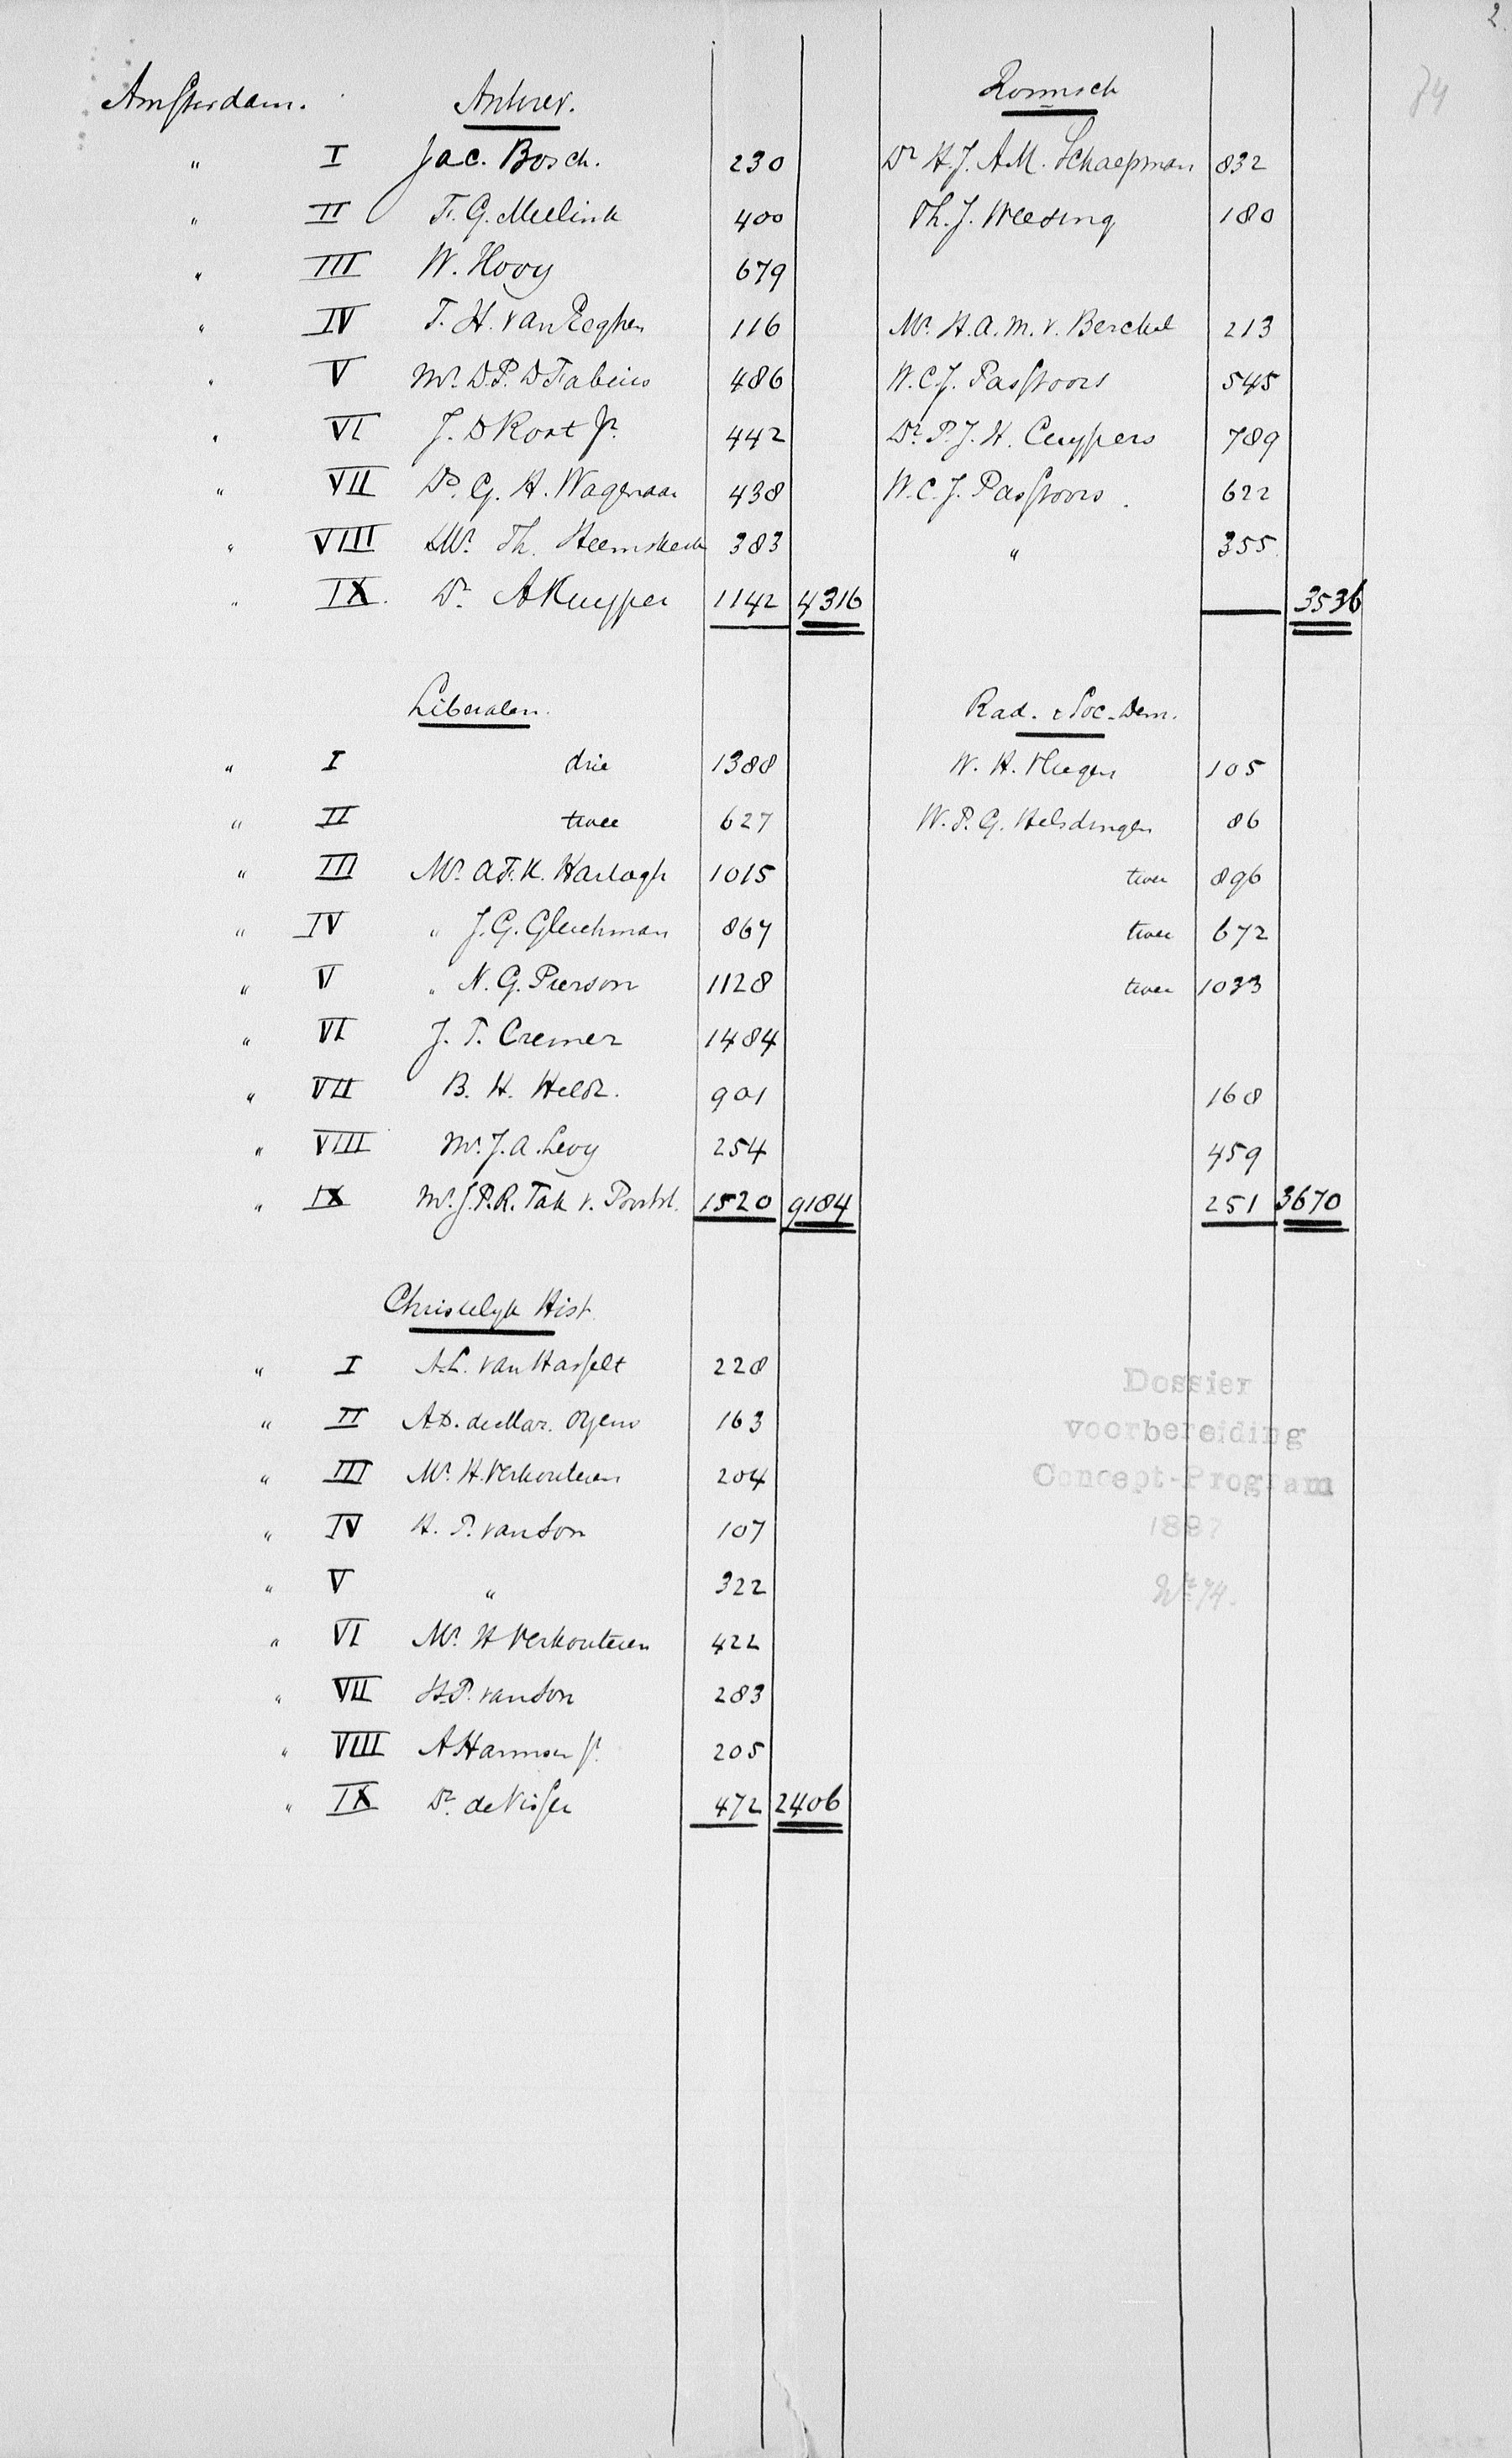 2.
Amsterdam. Antirev. Roomsch 74
" I Jac. Bosch. 230 Dr H.J.A.M. Schaepman 832
" II F.G. Meelink 400 Th.J. Weesing 180
" III W. Hovy 679
" IV F.H. van Eeghen 116 Mr. H.A.M. v. Berckel 213
" V Mr. D.P.D Fabius 486 W.C.J. Passtoors 545
" VI J. D Kort Jr. 442 Dr. P.J.H. Cuypers 789
" VII Ds. G.H. Wagenaar 438 W.C.J. Passtoors. 622
" VIII Mr. Th. Heemskerk 383 " 355.
" IX. Dr. A Kuyper 1142 4316 3536
Liberalen. Rad. & Soc-Dem.
" I drie 1388 W.H. Vliegen 105
" II twee 627 W.P.G. Helsdingen 86
" III Mr. A.F.K. Hartogh 1015 twee 896
" IV " J.G. Gleichman 867 twee 672
" V " N.G. Pierson 1128 twee 1033
" VI J.T. Cremer 1484
" VII B.H. Heldt. 901 168
" VIII Mr. J.A. Levy 254 459
" IX Mr. J.P.R. Tak v. Poortvl. 1520 9184 251 3670
Christelyk Hist.
" I A.L. van Hasselt 228
" II A.D. de Mar. Oyens 163
" III Mr. H. Verkouteren 204
" IV H.P. van Son 107
" V " 322
" VI Mr. H Verkouteren 422
" VII H.P. van Son 283
" VIII A Harmsen Jr. 205
" IX Dr. de Visser 472 2406
Dossier
voorbereiding
Concept-Program
1897
No 74.